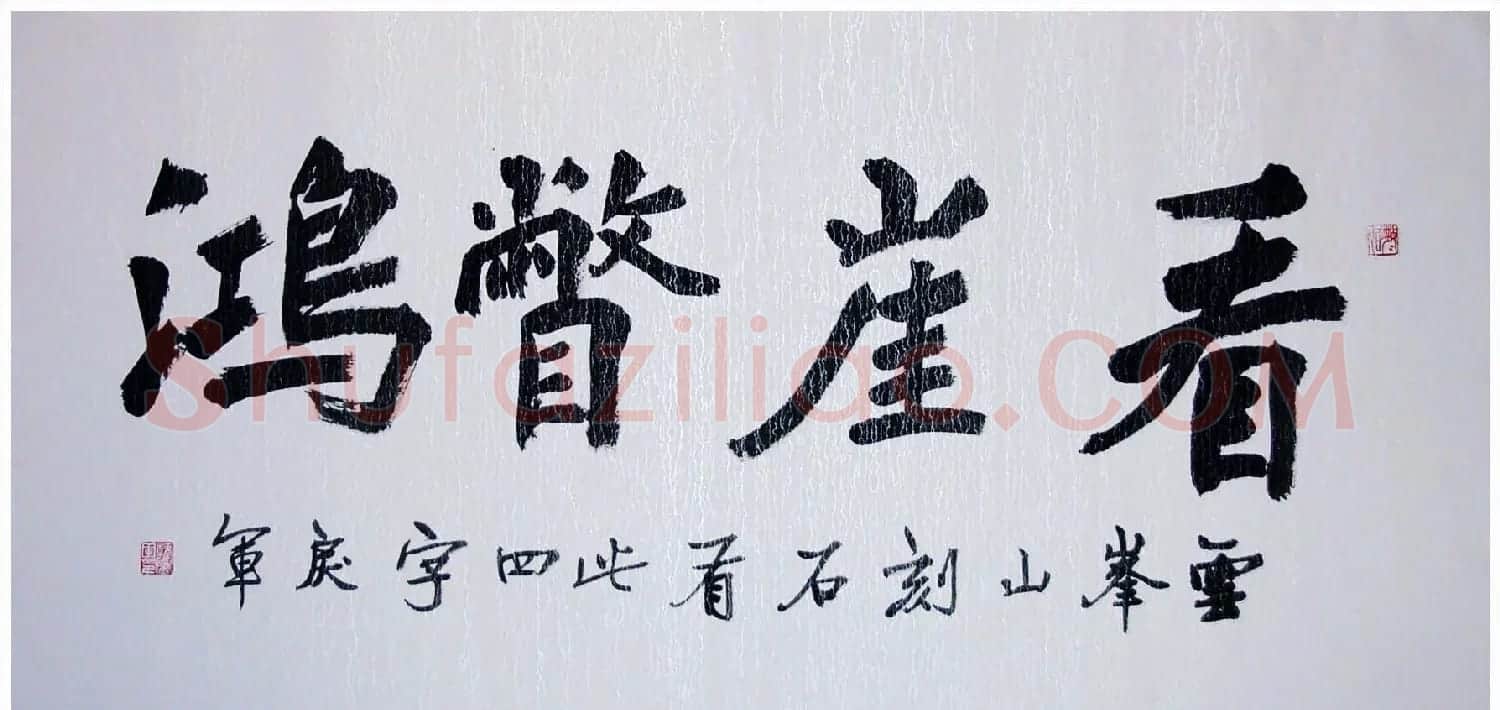 看崖瞥鴻
雲峯山刻石看此四字戾軍
Shufaziliao.COM